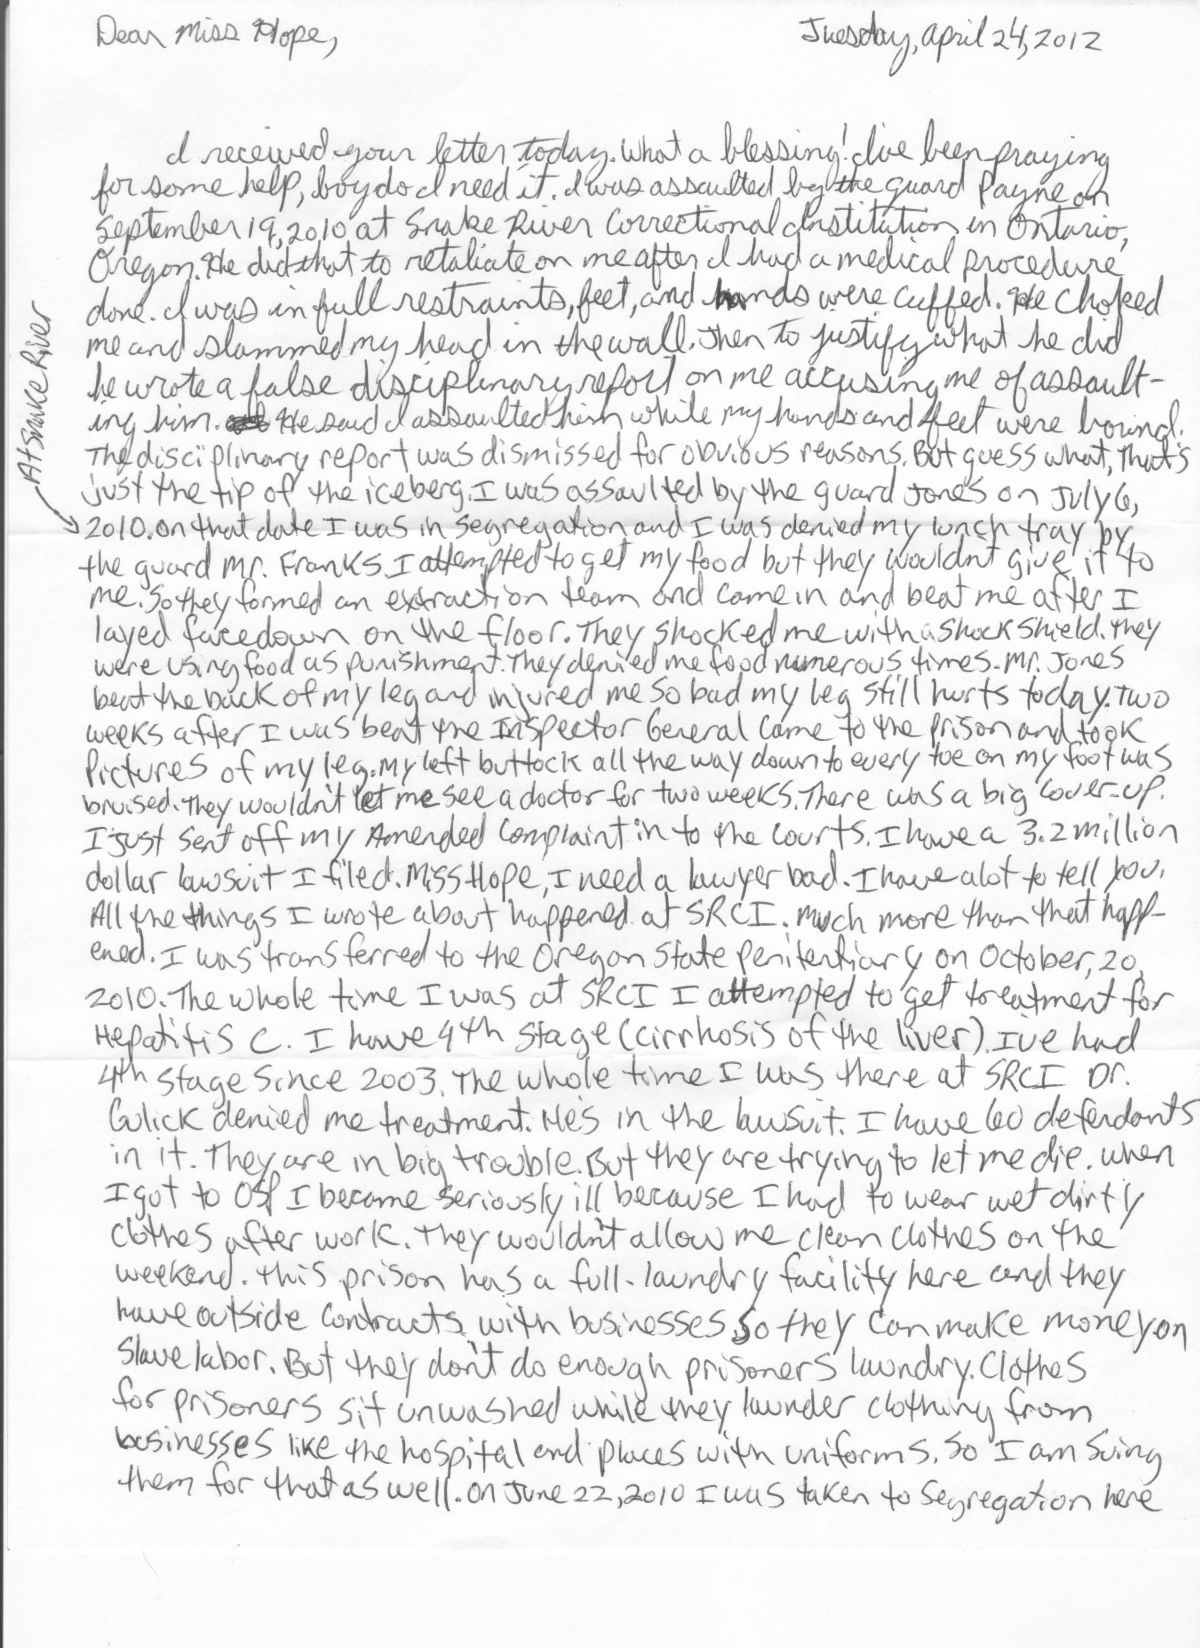 Dear Miss Hope,
Tuesday, April 24, 2012
I received your letter today. What a blessing! I've been praying
for some help, boy do I need it. I was assaulted by the guard Payne on
September 19, 2010 at Snake River Correctional Institution in Ontario,
Oregon. He did that to retaliate on me after I had a medical procedure
done. I was in full restraints, feet, and hands were cuffed. He choked
me and slammed my head in the wall. Then to justify what he did
he wrote a false disciplinary report on me accusing me of assault-
ing him. He said I assaulted him while my hands and feet were bound.
The disciplinary report was dismissed for obvious reasons. But guess what, that's
just the tip of the iceberg. I was assaulted by the guard Jones on July 6,
At Snake River
2010. On that date I was in segregation and I was denied my lunch tray by
the guard Mr. Franks. I attempted to get my food but they wouldn't give it to
me. So they formed an extraction team and came in and beat me after I
layed facedown on the floor. They shocked me with a shock shield. They
were using food as punishment. They denied me food numerous times. Mr. Jones
beat the back of my leg and injured me so bad my leg still hurts today. Two
weeks after I was beat the Inspector General came to the prison and took
pictures of my leg. My left buttock all the way down to every toe on my foot was
bruised. They wouldn't let me see a doctor for two weeks. There was a big cover-up.
I just sent off my Amended Complaint in to the courts. I have a 3.2 million
dollar lawsuit I filed. Miss Hope, I need a lawyer bad. I have alot to tell you.
All the things I wrote about happened at SRCI. Much more than that happ-
ened. I was transferred to the Oregon State Penitentiary on October, 20,
2010. The whole time I was at SRCI I attempted to get treatment for
Hepatitis C. I have 4th stage (cirrhosis of the liver). I've had
4th stage since 2003. The whole time I was there at SRCI Dr.
Gulick denied me treatment. He's in the lawsuit. I have 60 defendants
in it. They are in big trouble. But they are trying to let me die. When
I got to OSP I became seriously ill because I had to wear wet dirty
clothes after work. They wouldn't allow me clean clothes on the
weekend. This prison has a full-laundry facility here and they
have outside contracts with businesses so they can make money on
slave labor. But they don't do enough prisoners laundry. Clothes
for prisoners sit unwashed while they launder clothing from
businesses like the hospital and places with uniforms. So I am suing
them for that as well. On June 22, 2010 I was taken to segregation here